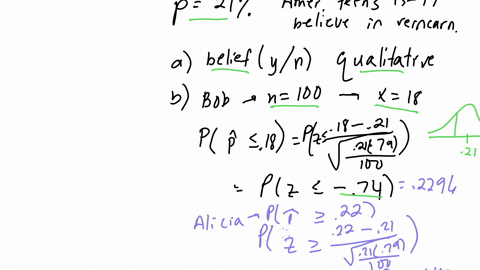 p = 21%. Amer. teens
believe in reincarn.
a) belief (y/n) qualitative
b) Bob → n = 100 → x = 18
P( p̂ ≤ .18) = P(z ≤ .18 - .21 / √(.21(.79)/100))
.21
= P( z ≤ -.74) = .2294
Alicia → P( p̂ ≥ .22)
P( z ≥ .22 - .21 / √(.21(.79)/100))